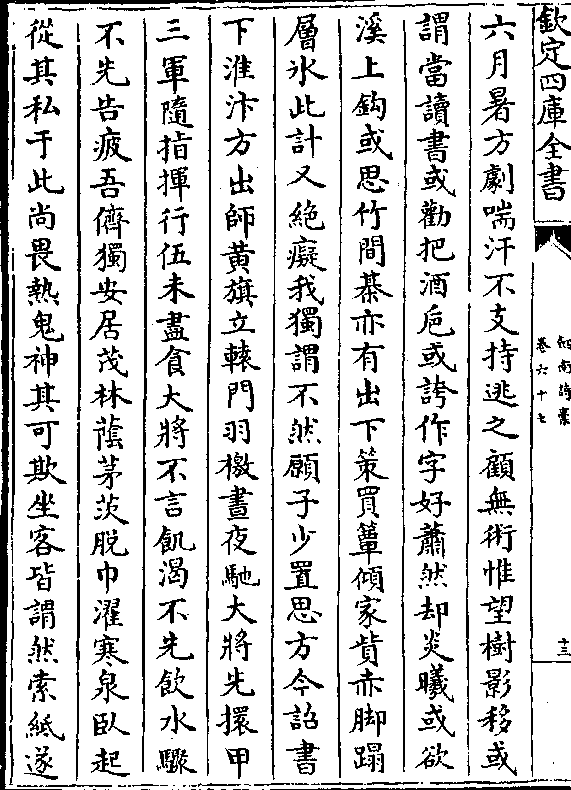 欽定四庫全書
劍南詩藁
卷六十七
十三
六月暑方劇喘汗不支持逃之顧無術惟望樹影移或
謂當讀書或勸把酒巵或誇作字好蕭然却炎曦或欲
溪上鈎或思竹間棊亦有出下策買簟傾家貲赤脚蹋
層氷此計又絶癡我獨謂不然願子少置思方今詔書
下淮汴方出師黄旗立轅門羽檄晝夜馳大將先擐甲
三軍隨指揮行伍未盡食大將不言飢渴不先飲水驟
不先告疲吾儕獨安居茂林䕃茅茨脱巾濯寒泉臥起
從其私于此尚畏熱鬼神其可欺坐客皆謂然索紙遂